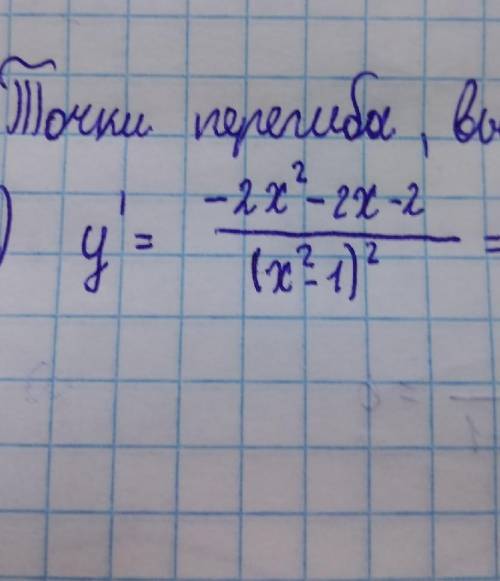 Точки перегиба, вы
) y' = (-2x² - 2x - 2) / (x² - 1)² =